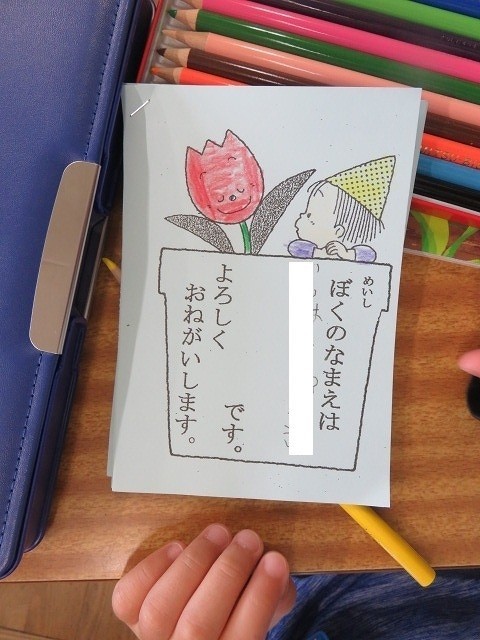 めいし
ぼくのなまえは
です。
よろしく
おねがいします。